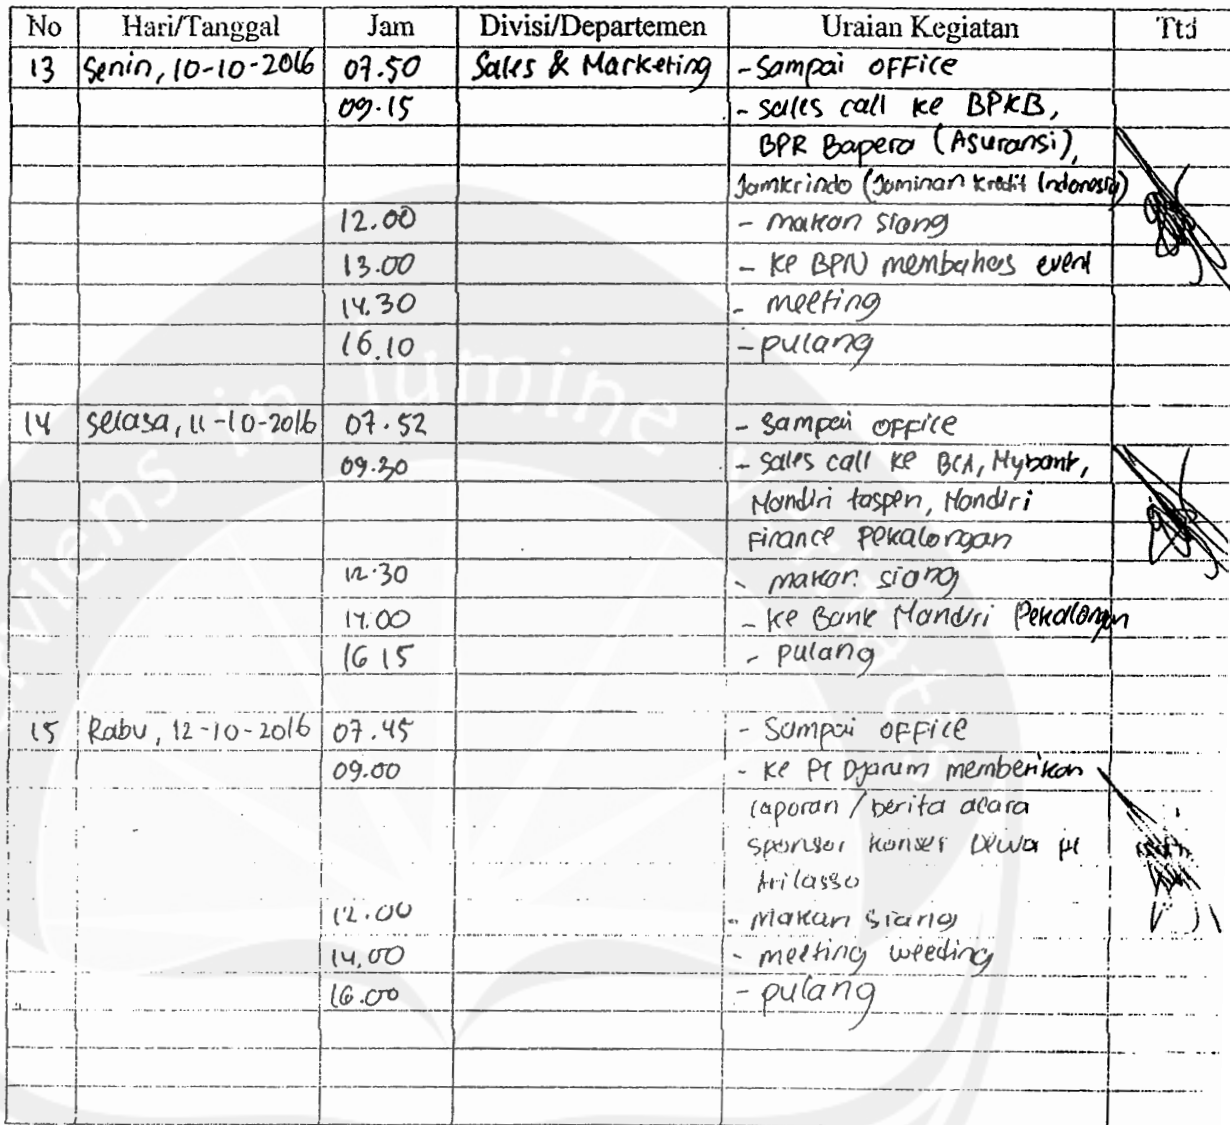 No Hari/Tanggal Jam Divisi/Departemen Uraian Kegiatan Ttd
13 Senin, 10-10-2016 07.50 Sales & Marketing - Sampai OFFice
09.15 - Sales call ke BPKB,
BPR Bapera (Asuransi),
Jamkrindo (Jaminan Kredit Indonesia)
12.00 - makan siang
13.00 - Ke BPN membahas event
14.30 - meeting
16.10 - pulang
14 Selasa, 11-10-2016 07.52 - Sampai OFFice
09.30 - Sales call ke BCA, Mybank,
Mandiri taspen, Mandiri
Finance Pekalongan
12.30 - makan siang
14.00 - Ke Bank Mandiri Pekalongan
16 15 - Pulang
15 Rabu, 12-10-2016 07.45 - Sampai OFFice
09.00 - Ke PT Djarum memberikan
laporan / berita acara
sponsor konser Dewa
Arilasso
12.00 - Makan Siang
14.00 - meeting weeding
16.00 - pulang
in lumine